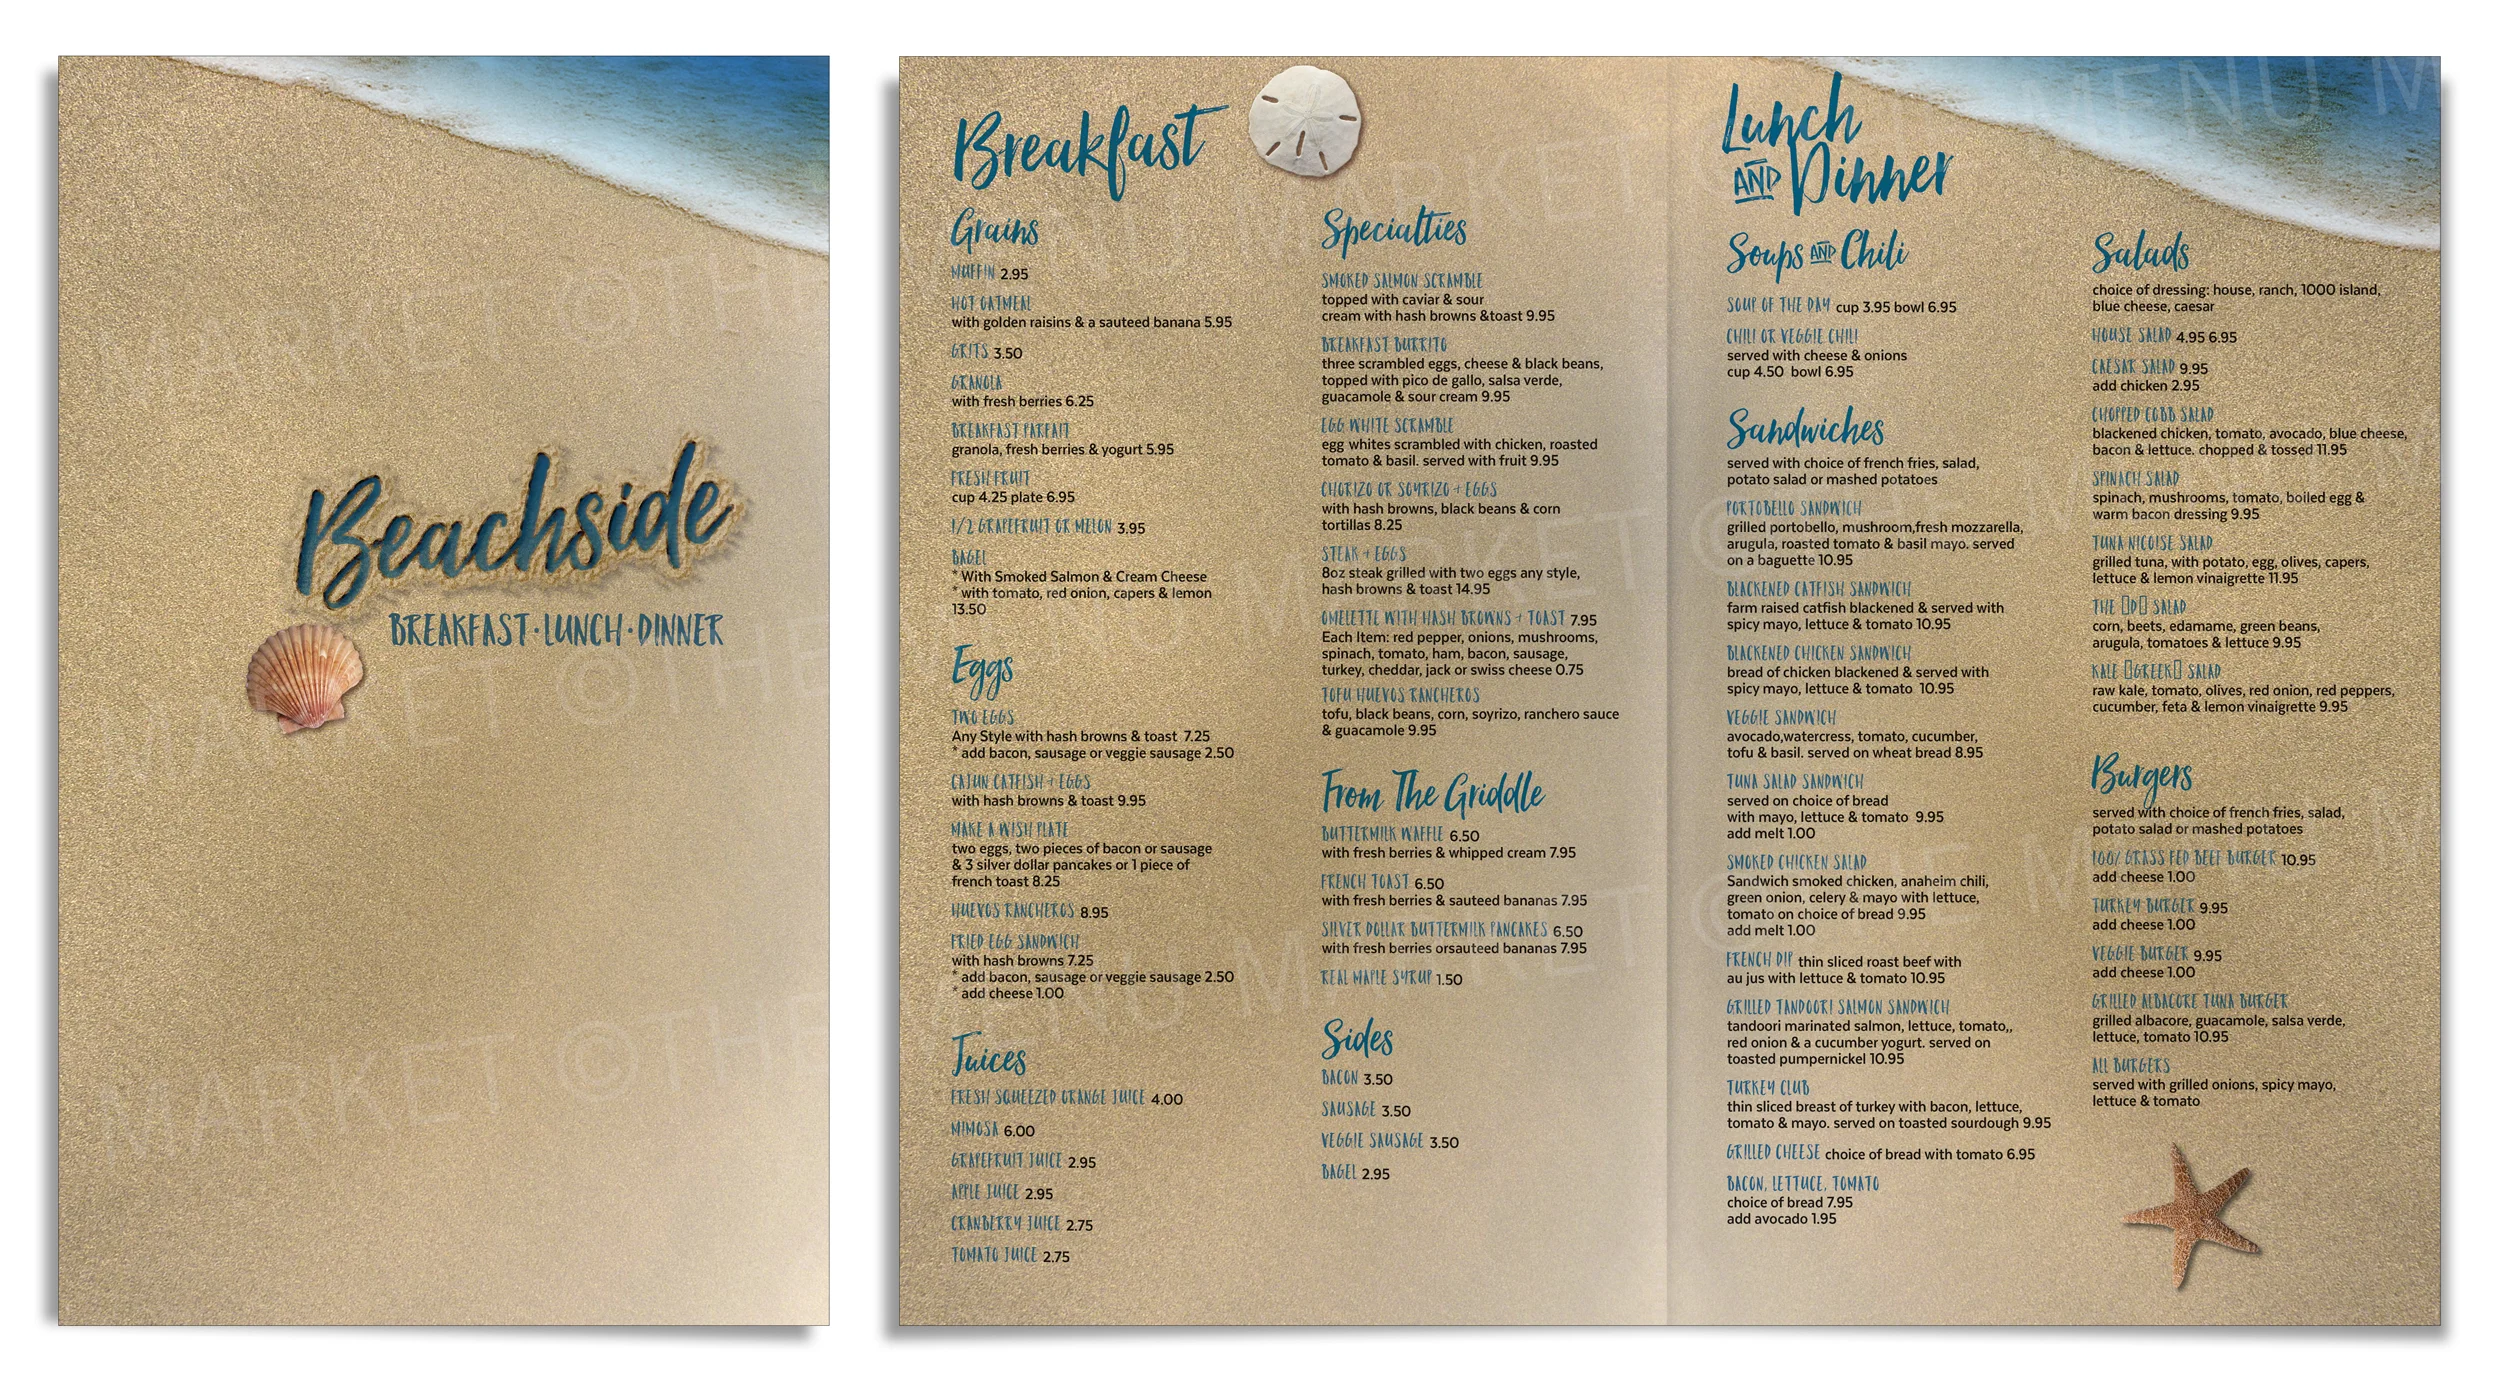 Beachside
BREAKFAST·LUNCH·DINNER
Breakfast
Grains
MUFFIN 2.95
HOT OATMEAL
with golden raisins & a sauteed banana 5.95
GRITS 3.50
GRANOLA
with fresh berries 6.25
BREAKFAST PARFAIT
granola, fresh berries & yogurt 5.95
FRESH FRUIT
cup 4.25 plate 6.95
1/2 GRAPEFRUIT OR MELON 3.95
BAGEL
* With Smoked Salmon & Cream Cheese
* with tomato, red onion, capers & lemon
13.50
Eggs
TWO EGGS
Any Style with hash browns & toast 7.25
* add bacon, sausage or veggie sausage 2.50
CAJUN CATFISH + EGGS
with hash browns & toast 9.95
MAKE A WISH PLATE
two eggs, two pieces of bacon or sausage
& 3 silver dollar pancakes or 1 piece of
french toast 8.25
HUEVOS RANCHEROS 8.95
FRIED EGG SANDWICH
with hash browns 7.25
* add bacon, sausage or veggie sausage 2.50
* add cheese 1.00
Juices
FRESH SQUEEZED ORANGE JUICE 4.00
MIMOSA 6.00
GRAPEFRUIT JUICE 2.95
APPLE JUICE 2.95
CRANBERRY JUICE 2.75
TOMATO JUICE 2.75
Specialties
SMOKED SALMON SCRAMBLE
topped with caviar & sour
cream with hash browns &toast 9.95
BREAKFAST BURRITO
three scrambled eggs, cheese & black beans,
topped with pico de gallo, salsa verde,
guacamole & sour cream 9.95
EGG WHITE SCRAMBLE
egg whites scrambled with chicken, roasted
tomato & basil. served with fruit 9.95
CHORIZO OR SOYRIZO + EGGS
with hash browns, black beans & corn
tortillas 8.25
STEAK + EGGS
8oz steak grilled with two eggs any style,
hash browns & toast 14.95
OMELETTE WITH HASH BROWNS + TOAST 7.95
Each Item: red pepper, onions, mushrooms,
spinach, tomato, ham, bacon, sausage,
turkey, cheddar, jack or swiss cheese 0.75
TOFU HUEVOS RANCHEROS
tofu, black beans, corn, soyrizo, ranchero sauce
& guacamole 9.95
From The Griddle
BUTTERMILK WAFFLE 6.50
with fresh berries & whipped cream 7.95
FRENCH TOAST 6.50
with fresh berries & sauteed bananas 7.95
SILVER DOLLAR BUTTERMILK PANCAKES 6.50
with fresh berries orsauteed bananas 7.95
REAL MAPLE SYRUP 1.50
Sides
BACON 3.50
SAUSAGE 3.50
VEGGIE SAUSAGE 3.50
BAGEL 2.95
Lunch
AND Dinner
Soups AND Chili
SOUP OF THE DAY cup 3.95 bowl 6.95
CHILI OR VEGGIE CHILI
served with cheese & onions
cup 4.50 bowl 6.95
Sandwiches
served with choice of french fries, salad,
potato salad or mashed potatoes
PORTOBELLO SANDWICH
grilled portobello, mushroom,fresh mozzarella,
arugula, roasted tomato & basil mayo. served
on a baguette 10.95
BLACKENED CATFISH SANDWICH
farm raised catfish blackened & served with
spicy mayo, lettuce & tomato 10.95
BLACKENED CHICKEN SANDWICH
bread of chicken blackened & served with
spicy mayo, lettuce & tomato 10.95
VEGGIE SANDWICH
avocado,watercress, tomato, cucumber,
tofu & basil. served on wheat bread 8.95
TUNA SALAD SANDWICH
served on choice of bread
with mayo, lettuce & tomato 9.95
add melt 1.00
SMOKED CHICKEN SALAD
Sandwich smoked chicken, anaheim chili,
green onion, celery & mayo with lettuce,
tomato on choice of bread 9.95
add melt 1.00
FRENCH DIP thin sliced roast beef with
au jus with lettuce & tomato 10.95
GRILLED TANDOORI SALMON SANDWICH
tandoori marinated salmon, lettuce, tomato,,
red onion & a cucumber yogurt. served on
toasted pumpernickel 10.95
TURKEY CLUB
thin sliced breast of turkey with bacon, lettuce,
tomato & mayo. served on toasted sourdough 9.95
GRILLED CHEESE choice of bread with tomato 6.95
BACON, LETTUCE, TOMATO
choice of bread 7.95
add avocado 1.95
Salads
choice of dressing: house, ranch, 1000 island,
blue cheese, caesar
HOUSE SALAD 4.95 6.95
CAESAR SALAD 9.95
add chicken 2.95
CHOPPED COBB SALAD
blackened chicken, tomato, avocado, blue cheese,
bacon & lettuce. chopped & tossed 11.95
SPINACH SALAD
spinach, mushrooms, tomato, boiled egg &
warm bacon dressing 9.95
TUNA NICOISE SALAD
grilled tuna, with potato, egg, olives, capers,
lettuce & lemon vinaigrette 11.95
THE ▯D▯ SALAD
corn, beets, edamame, green beans,
arugula, tomatoes & lettuce 9.95
KALE ▯GREEK▯ SALAD
raw kale, tomato, olives, red onion, red peppers,
cucumber, feta & lemon vinaigrette 9.95
Burgers
served with choice of french fries, salad,
potato salad or mashed potatoes
100% GRASS FED BEEF BURGER 10.95
add cheese 1.00
TURKEY BURGER 9.95
add cheese 1.00
VEGGIE BURGER 9.95
add cheese 1.00
GRILLED ALBACORE TUNA BURGER
grilled albacore, guacamole, salsa verde,
lettuce, tomato 10.95
ALL BURGERS
served with grilled onions, spicy mayo,
lettuce & tomato